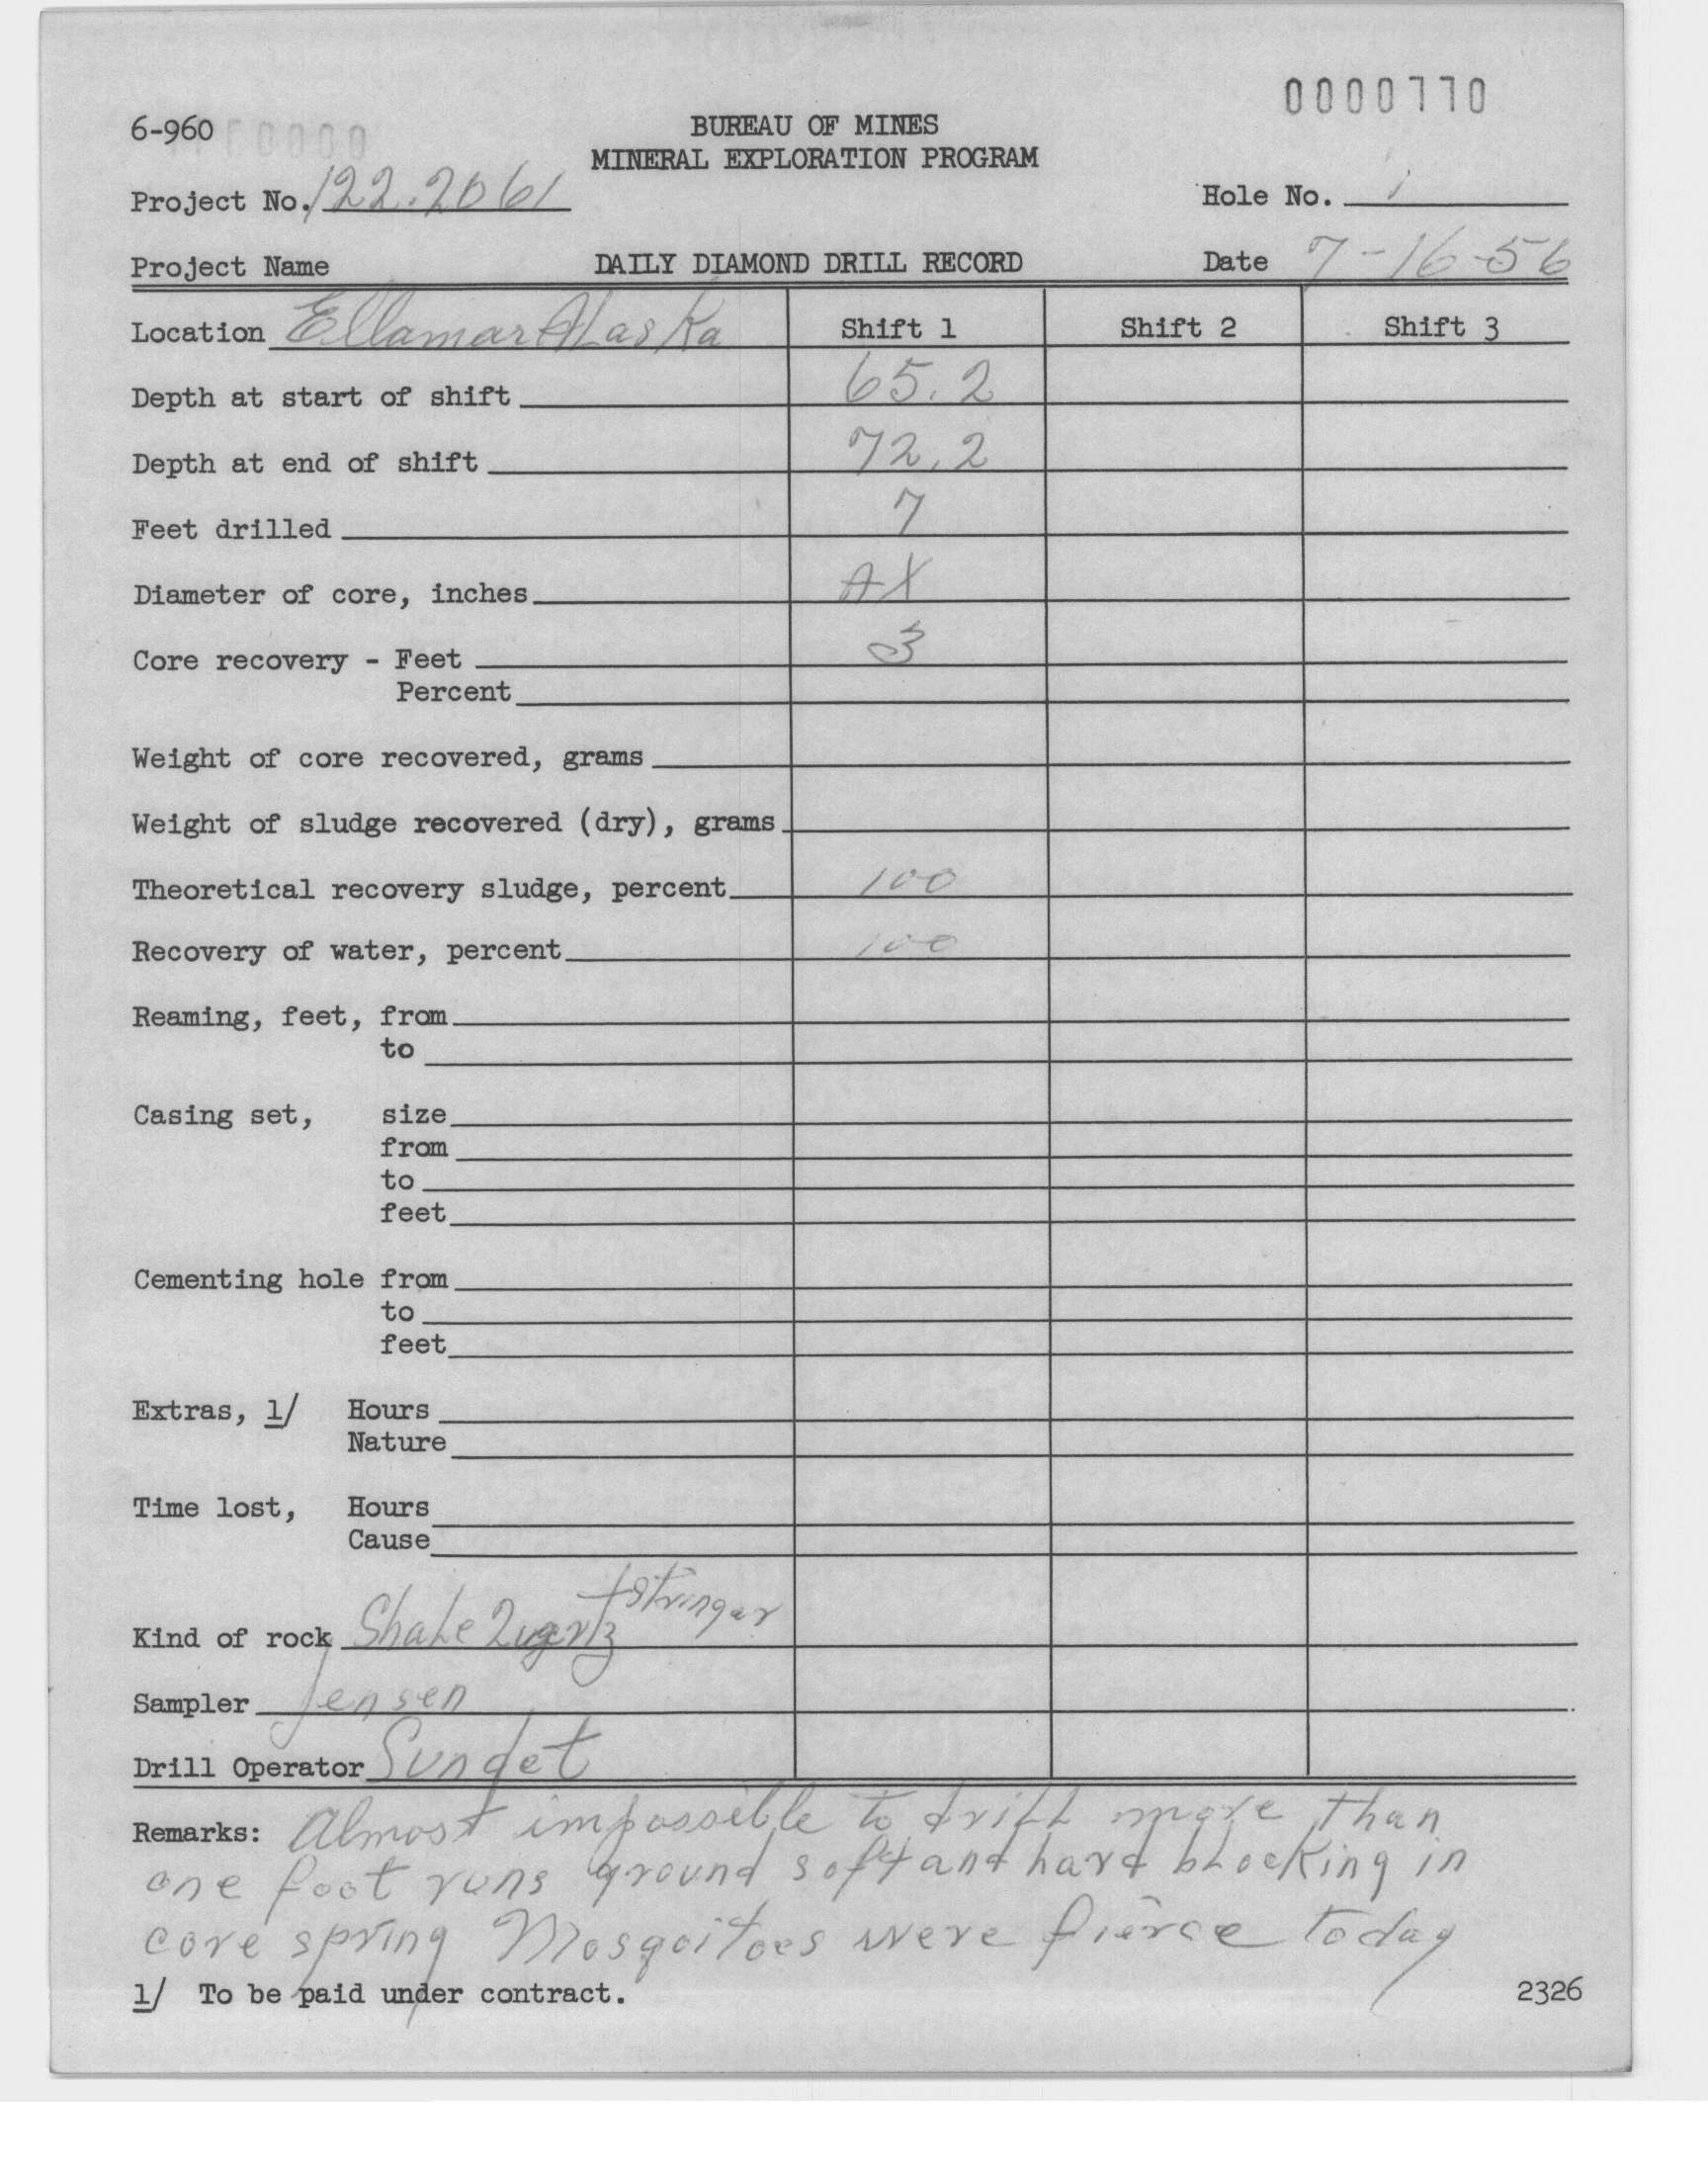 0000770
6-960
BUREAU OF MINES
MINERAL EXPLORATION PROGRAM
Project No. 122.2061
Hole No. 1
Project Name
DAILY DIAMOND DRILL RECORD
Date 7-16-56
Location Ellamar Alaska Shift 1 Shift 2 Shift 3
Depth at start of shift 65.2
Depth at end of shift 72.2
Feet drilled 7
Diameter of core, inches AX
Core recovery - Feet 3
Percent
Weight of core recovered, grams
Weight of sludge recovered (dry), grams
Theoretical recovery sludge, percent 100
Recovery of water, percent 100
Reaming, feet, from
to
Casing set, size
from
to
feet
Cementing hole from
to
feet
Extras, 1/ Hours
Nature
Time lost, Hours
Cause
Kind of rock Shale Quartz + Stringer
Sampler Jensen
Drill Operator Sundet
Remarks: Almost impossible to drill more than
one foot runs ground soft and hard blocking in
core spring Mosqoitoes were fierce today
1/ To be paid under contract.
2326